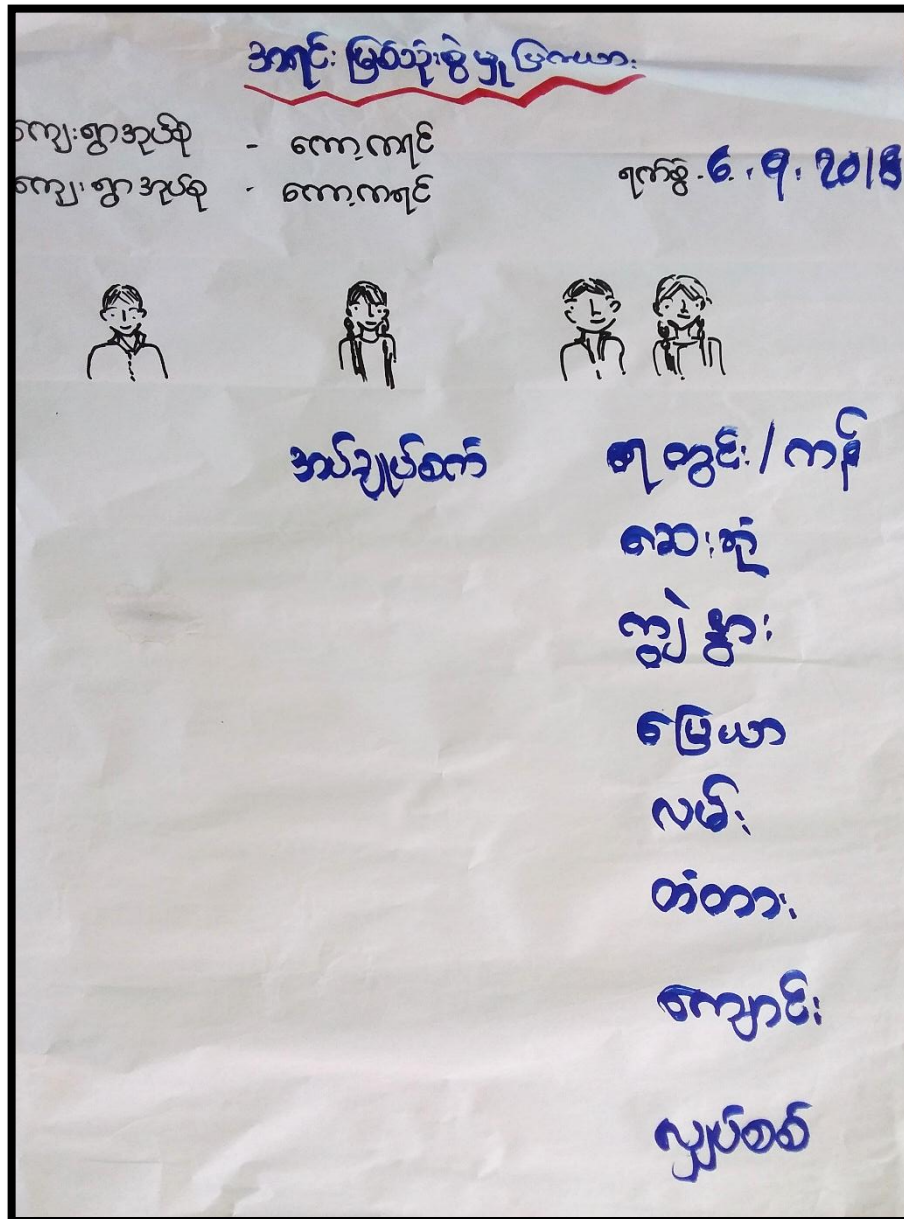 အရင်းမြစ်သုံးစွဲမှုပြဇယား
ကျေးရွာအုပ်စု - ကော့ကရင်
ကျေးရွာအုပ်စု - ကော့ကရင်
ရက်စွဲ . 6 . 9 . 2018
အပ်ချုပ်စက် ရေတွင်း/ကန်
ဆေးရုံ
ကျွဲနွား
မြေယာ
လမ်း
တံတား
ကျောင်း
လျှပ်စစ်